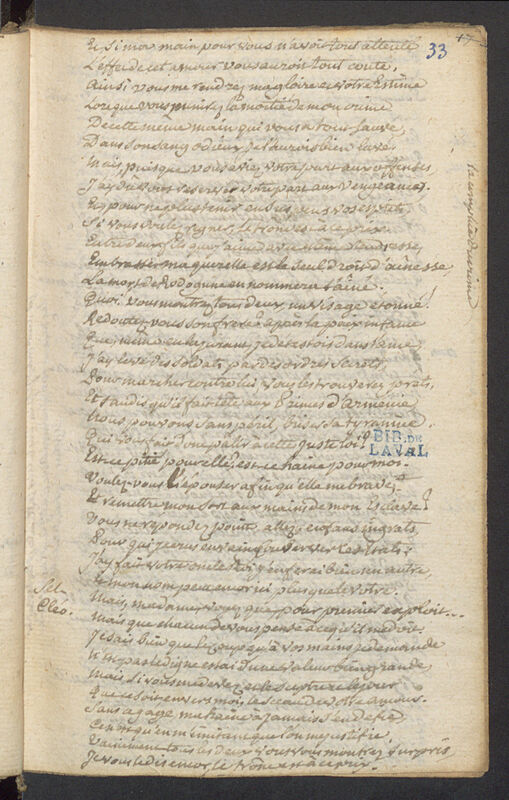 Et si ma main pour vous n'avoit tout attenté 33
L'effet de cet amour vous auroit tout couté,
Ainsi vous me rendrez ma gloire et votre Estime
Lorsque vous punirez la moitié de mon crime
De cette même main qui vous a tout sauvé,
Dans son sang odieux je l'aurois bien lavé.
Mais, puisque vous aviez votre part aux offenses,
J'ay dû vous reserver votre part aux Vengeances.
Et pour ne plus tenir en suspens vos esprits,
Si vous voulez regner, le trône est à ce prix.
Entre deux fils que j'aime avec même tendresse,
Embrasser ma querelle est le seul droit d'aînesse,
La mort de Rodogune en nommera l'aîné.
Quoi! vous montrez tous deux un visage étonné!
Redoutez-vous son frere? après la paix infame
Que, même en la jurant, je detestois dans l'ame,
J'ay levé des soldats par des ordres secrets,
Pour marcher contre lui vous les trouverez prêts,
Et tandis qu'il fait tête aux Princes d'Armenie
Nous pouvons sans péril, briser sa tyrannie.
Qui vous fait donc pâlir à cette juste loi?
Est-ce pitié pour elle? est-ce haine pour moi?
Voulez-vous l'épouser afin qu'elle me brave?
Et remettre mon sort aux mains de mon Esclave?
Vous ne repondez point, allez, enfans ingrats,
Pour qui je crus en vain conserver ces Etats;
J'ay fait votre oncle Roi, j'en ferai bien un autre,
Et mon nom peut encor ici plus que le votre.
Sel- Mais, madame, voyez que, pour premier exploit...
Cléo. Mais que chacun de vous pense à ce qu'il me doit.
Je sais bien que le sang qu'à vos mains je demande
N'est pas le digne essai d'une valeur bien grande,
Mais si vous me devez et le sceptre et le jour
Que ce soit envers moi, le sceau de votre amour.
Sans ce gage ma haine à jamais s'en defie
Ce n'est qu'en m'imitant que l'on me justifie.
Vainement tous les deux vous vous montrez surpris
Je vous le dis encor, le trône est à ce prix.
BIB. DE
LAVAL